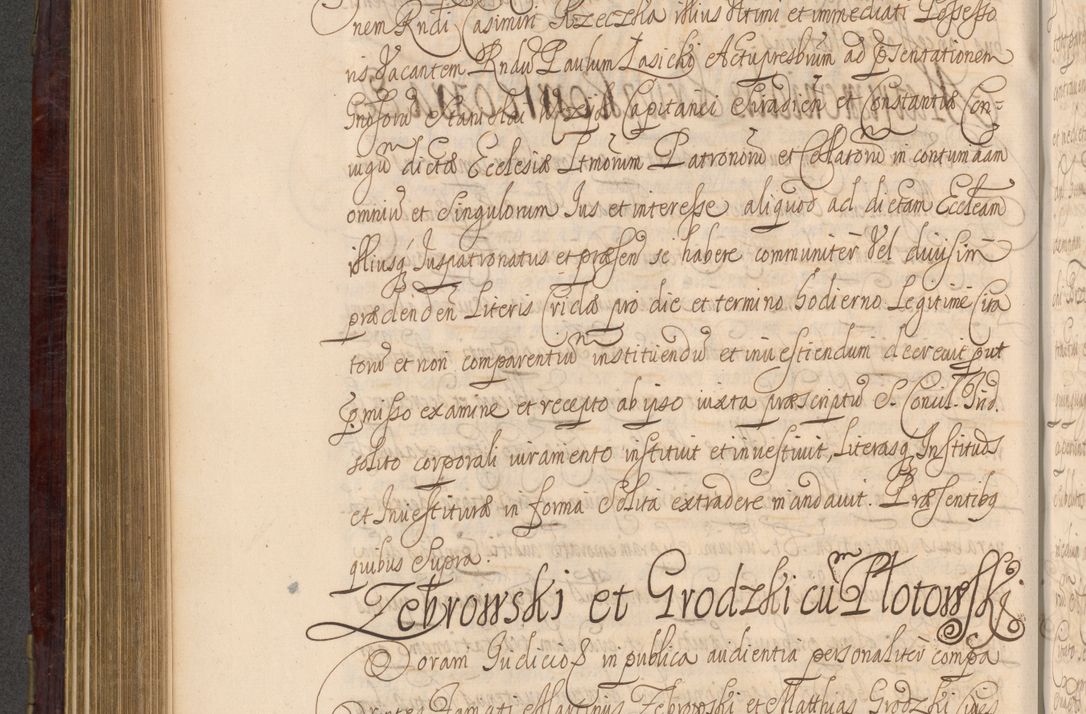 nem Rndi Casimiri Rzeczka illius Ultimi et immediati Possesso
ris Vacantem Rndū Paulum Lasicki Actupresbrūm ad Psentationem
Gnosorū Stanislai Capitanei Siradien et Constantiæ Con-
iugū dictæ Ecclesiæ Ltmorum Patronorū et Collatorū in contumaam
omniū et singulorum Jus et interesse aliquod ad dictam Eccleām
illiusq Juspatronatus et præsen se habere communiter Vel divisim
prædenden Literis Cridæ pro die et termino hodierno Legitime Cita
torū et non comparentiū instituendū et investiendum decrevit, put
Pmisso examine et recepto ab ipso iuxta præscriptū S. Concil. Trid.
solito corporali iuramento instituit et investivit, Literasq Institūs
et Investituræ in forma Solita extradere mandavit. Præsentibq
quibus Supra.
Zebrowski et Grodzki cū Płotowski
Coram Judicio S in publica audientia personaliter compa
rentes Famati Martinus Zebrowski et Matthias Grodzki Cives